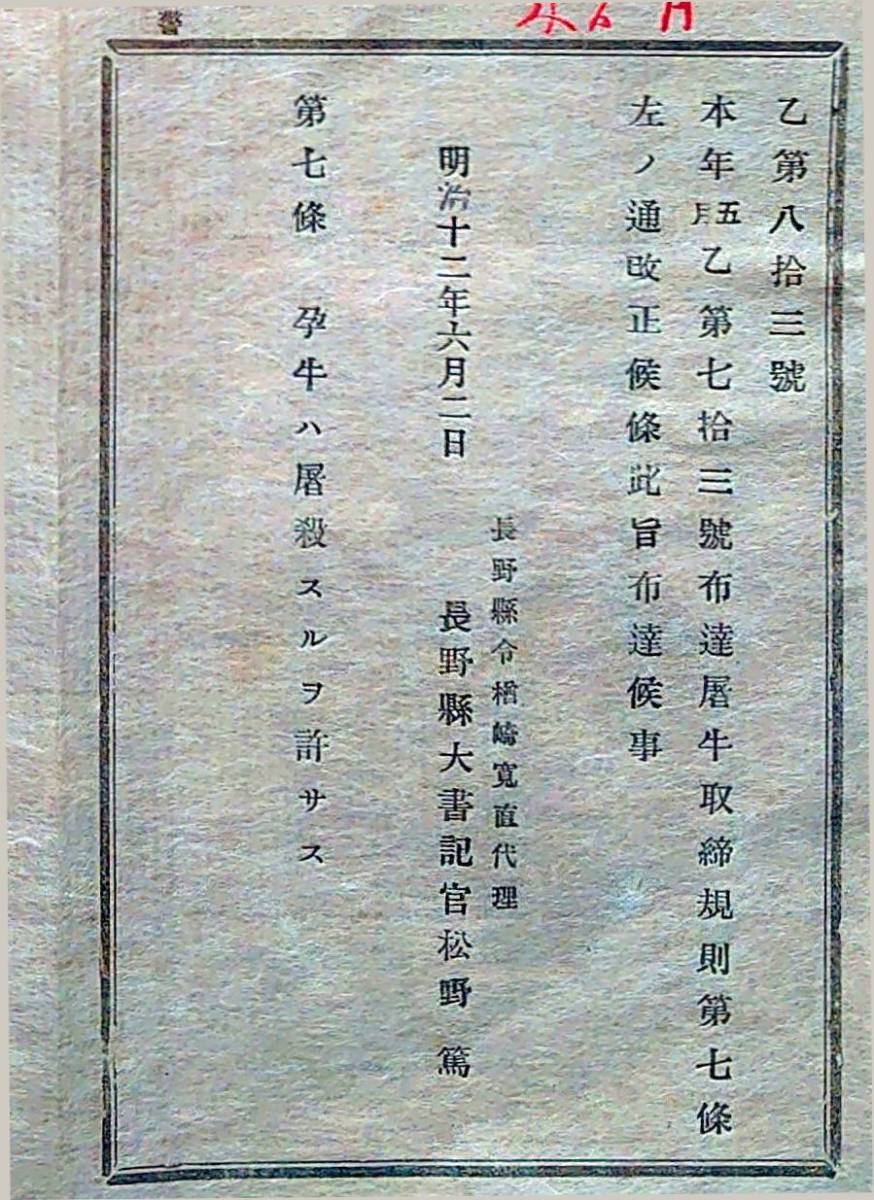 乙第八拾三號
本年五月乙第七拾三號布達屠牛取締規則第七條
左ノ通改正候條此旨布達候事
長野縣令楢崎寛直代理
明治十二年六月二日 長野縣大書記官松野篤
第七條 孕牛ハ屠殺スルヲ許サス